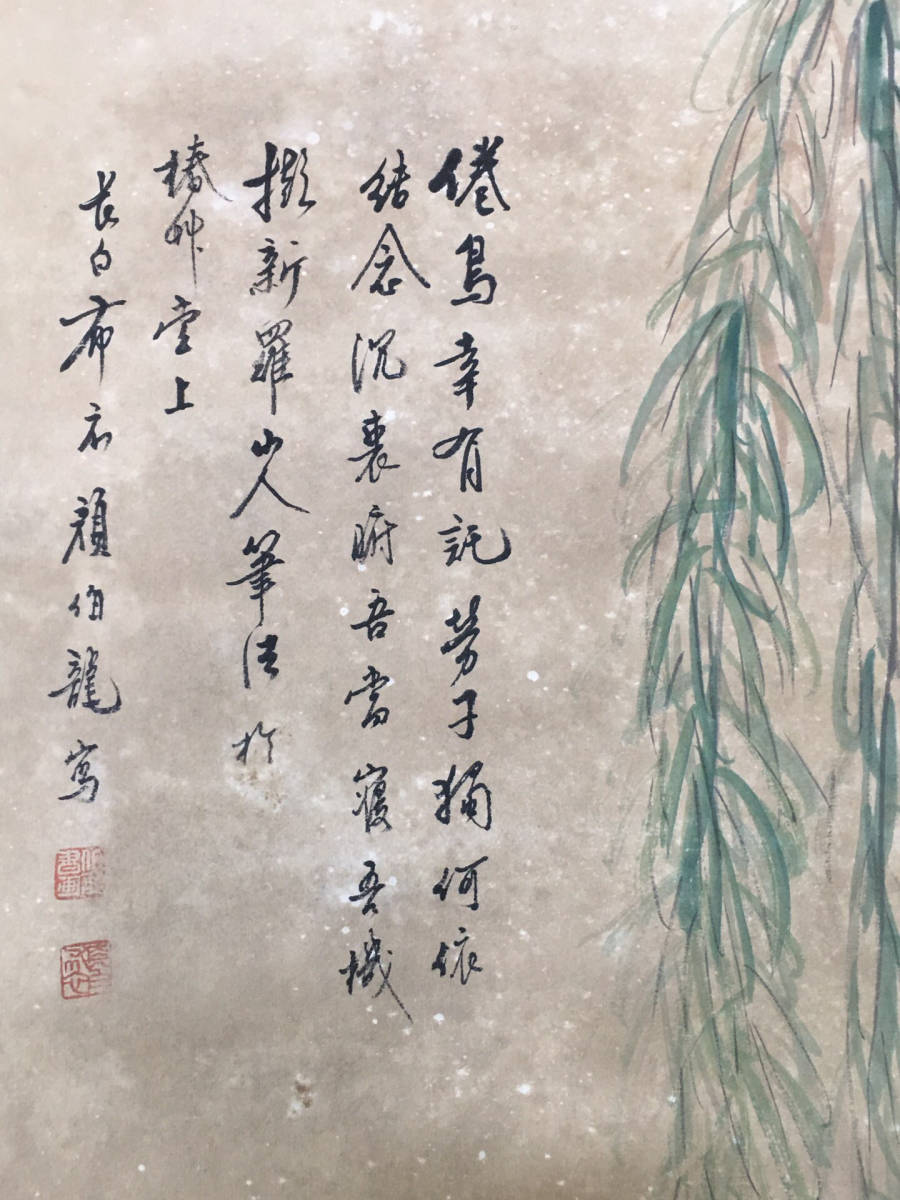 倦鳥幸有託勞子獨何依
結念沉衷腑吾當寢吾機
擬新羅山人筆法於
椿艸堂上
長白布衣顏伯龍寫